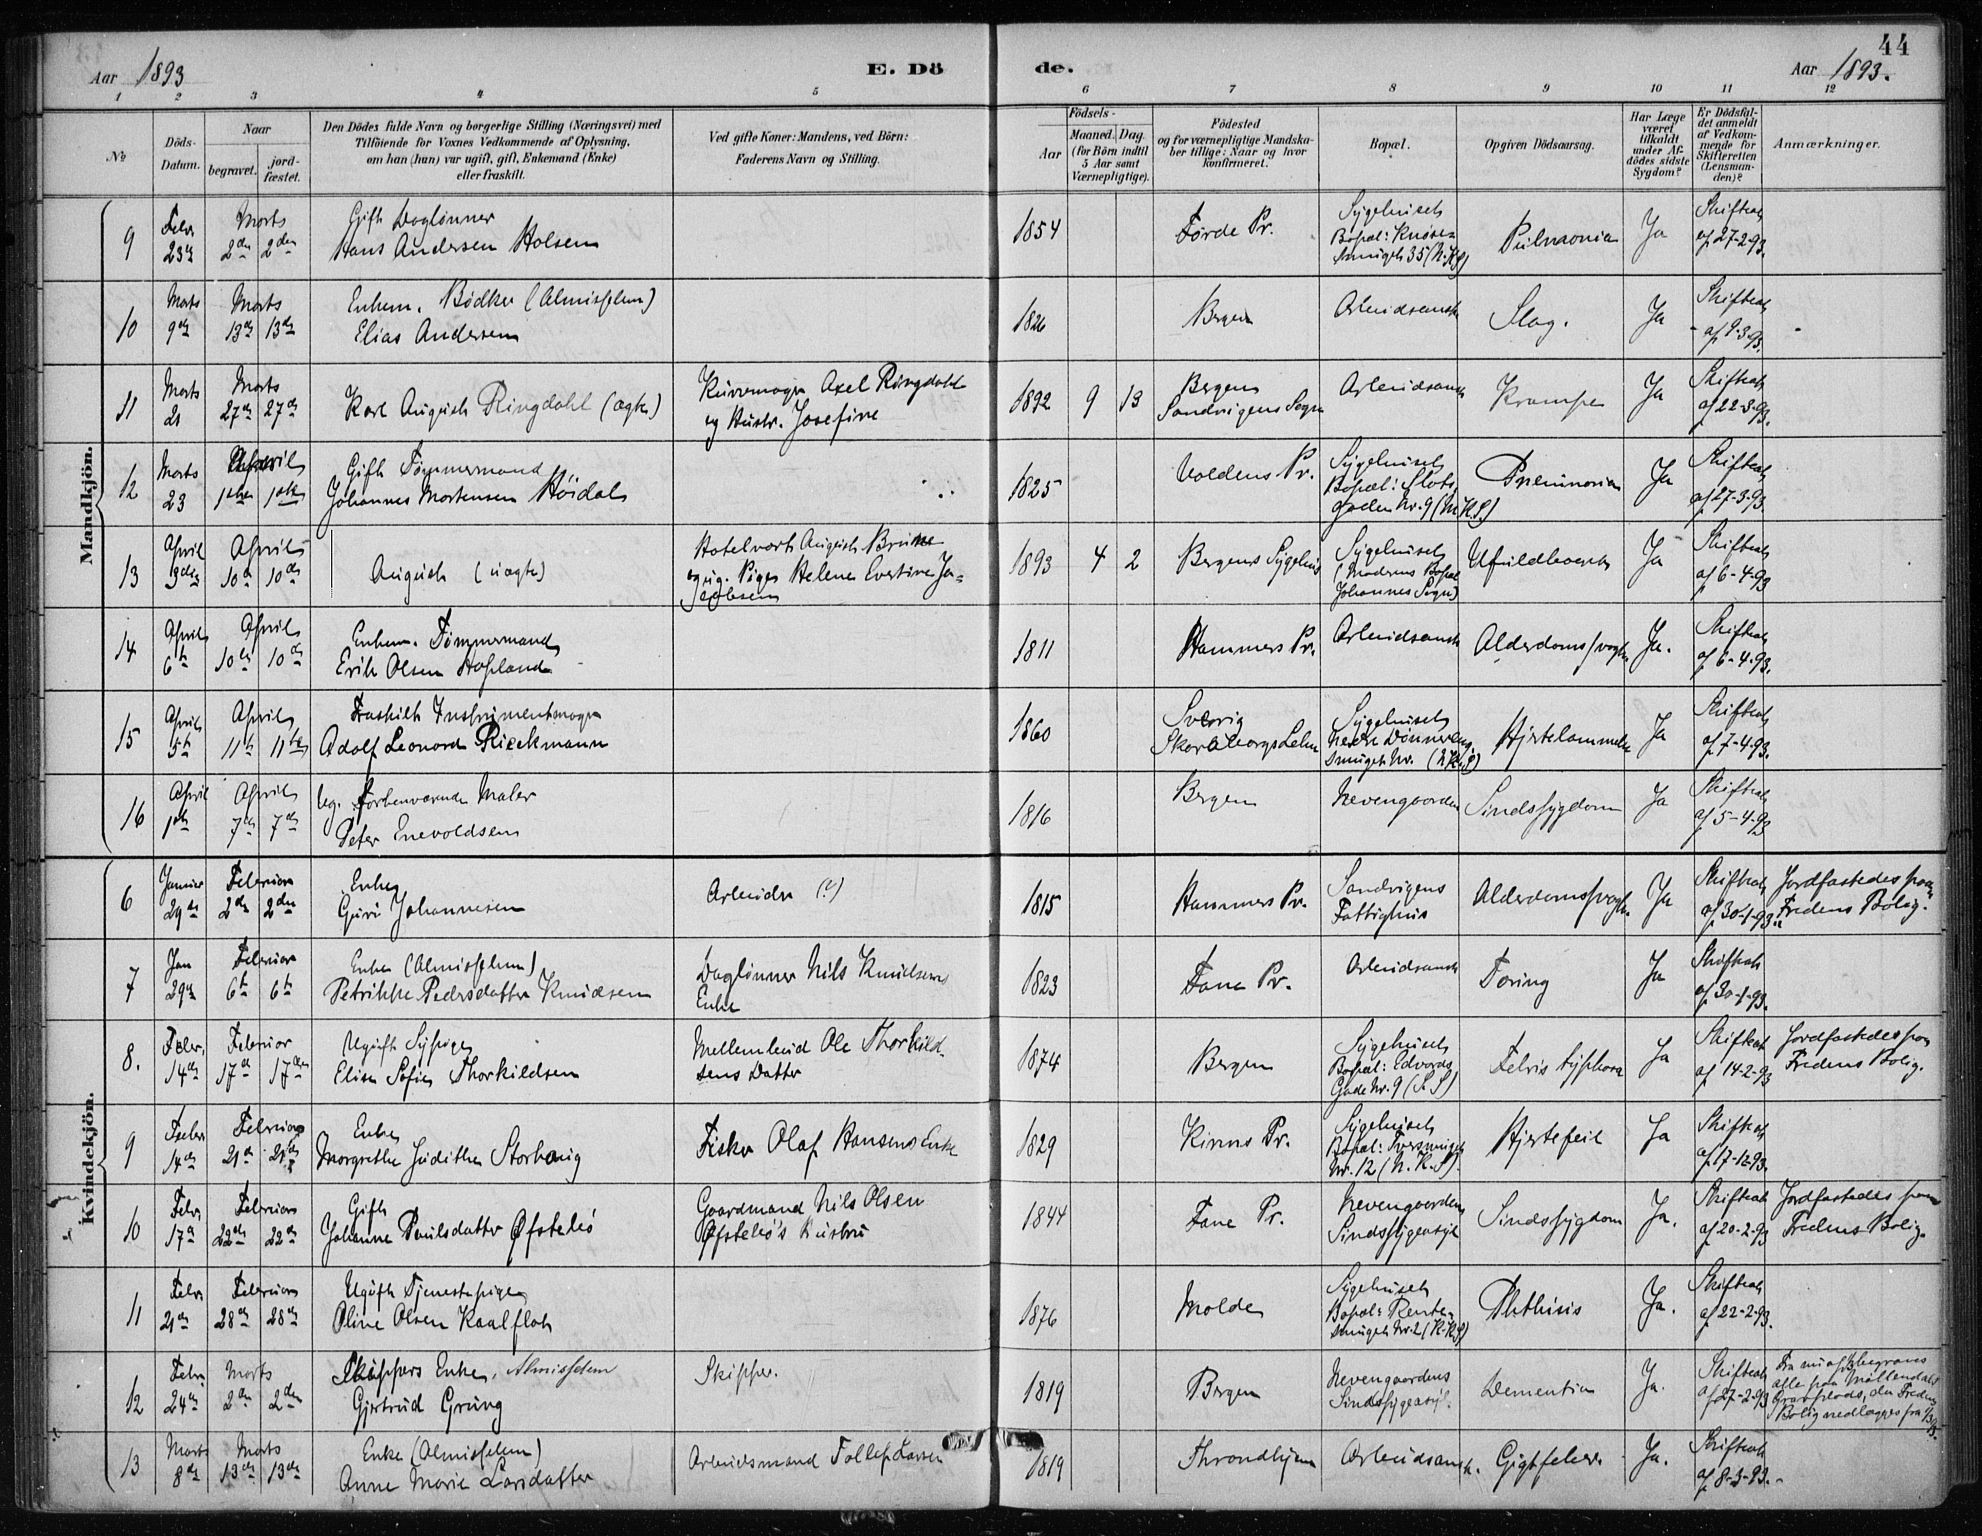 44
Aar 1893 E. Dö de. Aar 1893.
1 2 3 4 5 6 7 8 9 10 11 12
No
Döds-Datum.
Naar
begravet.
jord-fæstet.
Den Dödes fulde Navn og borgerlige Stilling (Næringsvei) med
Tilföiende for Voxnes Vedkommende af Oplysning,
om han (hun) var ugift, gift, Enkemand (Enke)
eller fraskilt.
Ved gifte Koner: Mandens, ved Börn:
Faderens Navn og Stilling.
Födsels-
Aar
Maaned.
Dag.
(for Börn indtil
5 Aar samt
Værnepligtige).
Födested
og for værnepligtige Mandska-
ber tillige: Naar og hvor
konfirmeret.
Bopæl.
Opgiven Dödsaarsag.
Har Læge
været
tilkaldt
under Af-
dödes sidste
Sygdom?
Er Dödsfal-
det anmeldt
af Vedkom-
mende for
Skifteretten
(Lensman-
den)?
Anmærkninger.
Mandkjön.
9 Febr 23de Marts 2den 2den Gift Daglønner
Hans Andersen Holsen
1854 Førde Pr. Sygehuset
Bopæl: Knøse-
smuget 35 (N. K. S) Pulmonia Ja Skifteatt
af 27-2-93.
10 Marts 9de Marts 13de 13de Enkem. Bødker (Almisselem)
Elias Andersen
1826 Bergen Arbeidsanst Slag. Ja Skifteatt
af 9-3-93.
11 Marts 21 Marts 27de 27de Karl August Ringdahl (ægte)
Kurvemager Axel Ringdahl
og Hustr. Josefine
1892 9 13 Bergen
Sandvigens Sogn Arbeidsanst Krampe Ja Skifteatt
af 22-3-93.
12 Marts 23 April 1ste 1ste Gift Tømmermand
Johannes Mortensen Høidal
1825 Voldens Pr. Sygehuset
Bopæl: Slots
gaden Nr. 9 (N. K. S.) Pneumonia Ja Skifteatt
af 27-3-93
13 April 3die April 10de 10de August (uægte)
Hotelvært August Brune
og ug. Pige Helene Evertine Ja-
cobsen
1893 4 2 Bergens Sygehus Sygehuset
(Moderens Bopæl
Johannes Sogn) Ufuldbaaren Ja Skifteatt
af 6-4-93
14 April 6te April 10de 10de Enkem. Tømmermand
Erik Olsen Hopland
1811 Hammers Pr. Arbeidsanst Alderdomssvaghed Ja. Skifteatt
af 6-4-93.
15 April 5te April 11te 11te Fraskilt Instrumentmager
Adolf Leonard Rieckmann
1860 Sverig
Skaraborgs Lehn Sygehuset
Nedre Dønnereng
smuget Nr. (N. K. S) Hjertelammelse Ja Skifteatt
af 7-4-93.
16 April 1ste April 7de 7de Ug. Forhenværende Maler
Peter Enevoldsen
1816 Bergen Nevengaarden Sindssygdom Ja Skifteatt
af 5-4-93
Kvindekjön.
6 Januar 29de Februar 2den 2den Enke
Guri Johannesen
Arbeider (?)
1815 Hammers Pr. Sandvigens
Fattighus Alderdomssvaghed Ja Skifteatt
af 30-1-93. Jordfæstedes paa
Fredens Bolig.
7 Jan 29de Februar 6te 6te Enke (Almisselem)
Petrikke Pedersdatter Knudsen
Daglønner Nils Knudsens
Enke
1823 Fane Pr. Arbeidsanst Tæring Ja Skifteatt
af 30-1-93.
8. Febr. 14de Februar 17de 17de Ugift Sypige
Elise Sofie Thorkildsen
Mellembud Ole Thorkild-
sens Datter
1874 Bergen Sygehuset
Bopæl: Edvards
Gade Nr. 9 (S. S) Febris typhosa Ja Skifteatt
af 14-2-93 Jordfæstedes paa
Fredens Bolig.
9 Febr 14de Februar 21de 21de Enke
Margrethe Judithe Storhaug
Fisker Olaf Hansens Enke
1829 Kinns Pr. Sygehuset
Bopæl: Tversmuget
Nr. 12 (N. K. S) Hjertefeil Ja Skifteatt
af 17-12-93.
10 Febr 17de Februar 22de 22de Gift
Johanne Poulsdatter Øfstebø
Gaardmand Nils Olsen
Øfstebø's Hustru
1844 Fane Pr. Nevengaardens
Sindssygeasyl Sindssygdom Ja. Skifteatt
af 20-2-93 Jordfæstedes paa
Fredens Bolig.
11 Febr 21de Februar 28de 28de Ugift Tjenestepige
Oline Olsen Kaalflot
1876 Molde Sygehuset
Bopæl: Rente-
smuget Nr. 2 (K. K. S) Phthisis Ja. Skifteatt
af 22-2-93.
12 Febr 24de Marts 2den 2den Skippers Enke, Almisselem
Gjertrud Grung
Skipper.
1819 Bergen Nevengaardens
Sindssygeasyl. Dementia Ja. Skifteatt
af 27-2-93 Fra nu af begraves
alle paa Møllendals
Gravplads, da Fredens
Bolig nedlægges fra 1/3 93.
13 Marts 8de Marts 13de 13de Enke (Almisselem)
Anne Marie Larsdatter
Arbeidsmand Tollef Larsen
1819 Throndhjem Arbeidsanst. Gigtfeber Ja. Skifteatt
af 8-3-93.